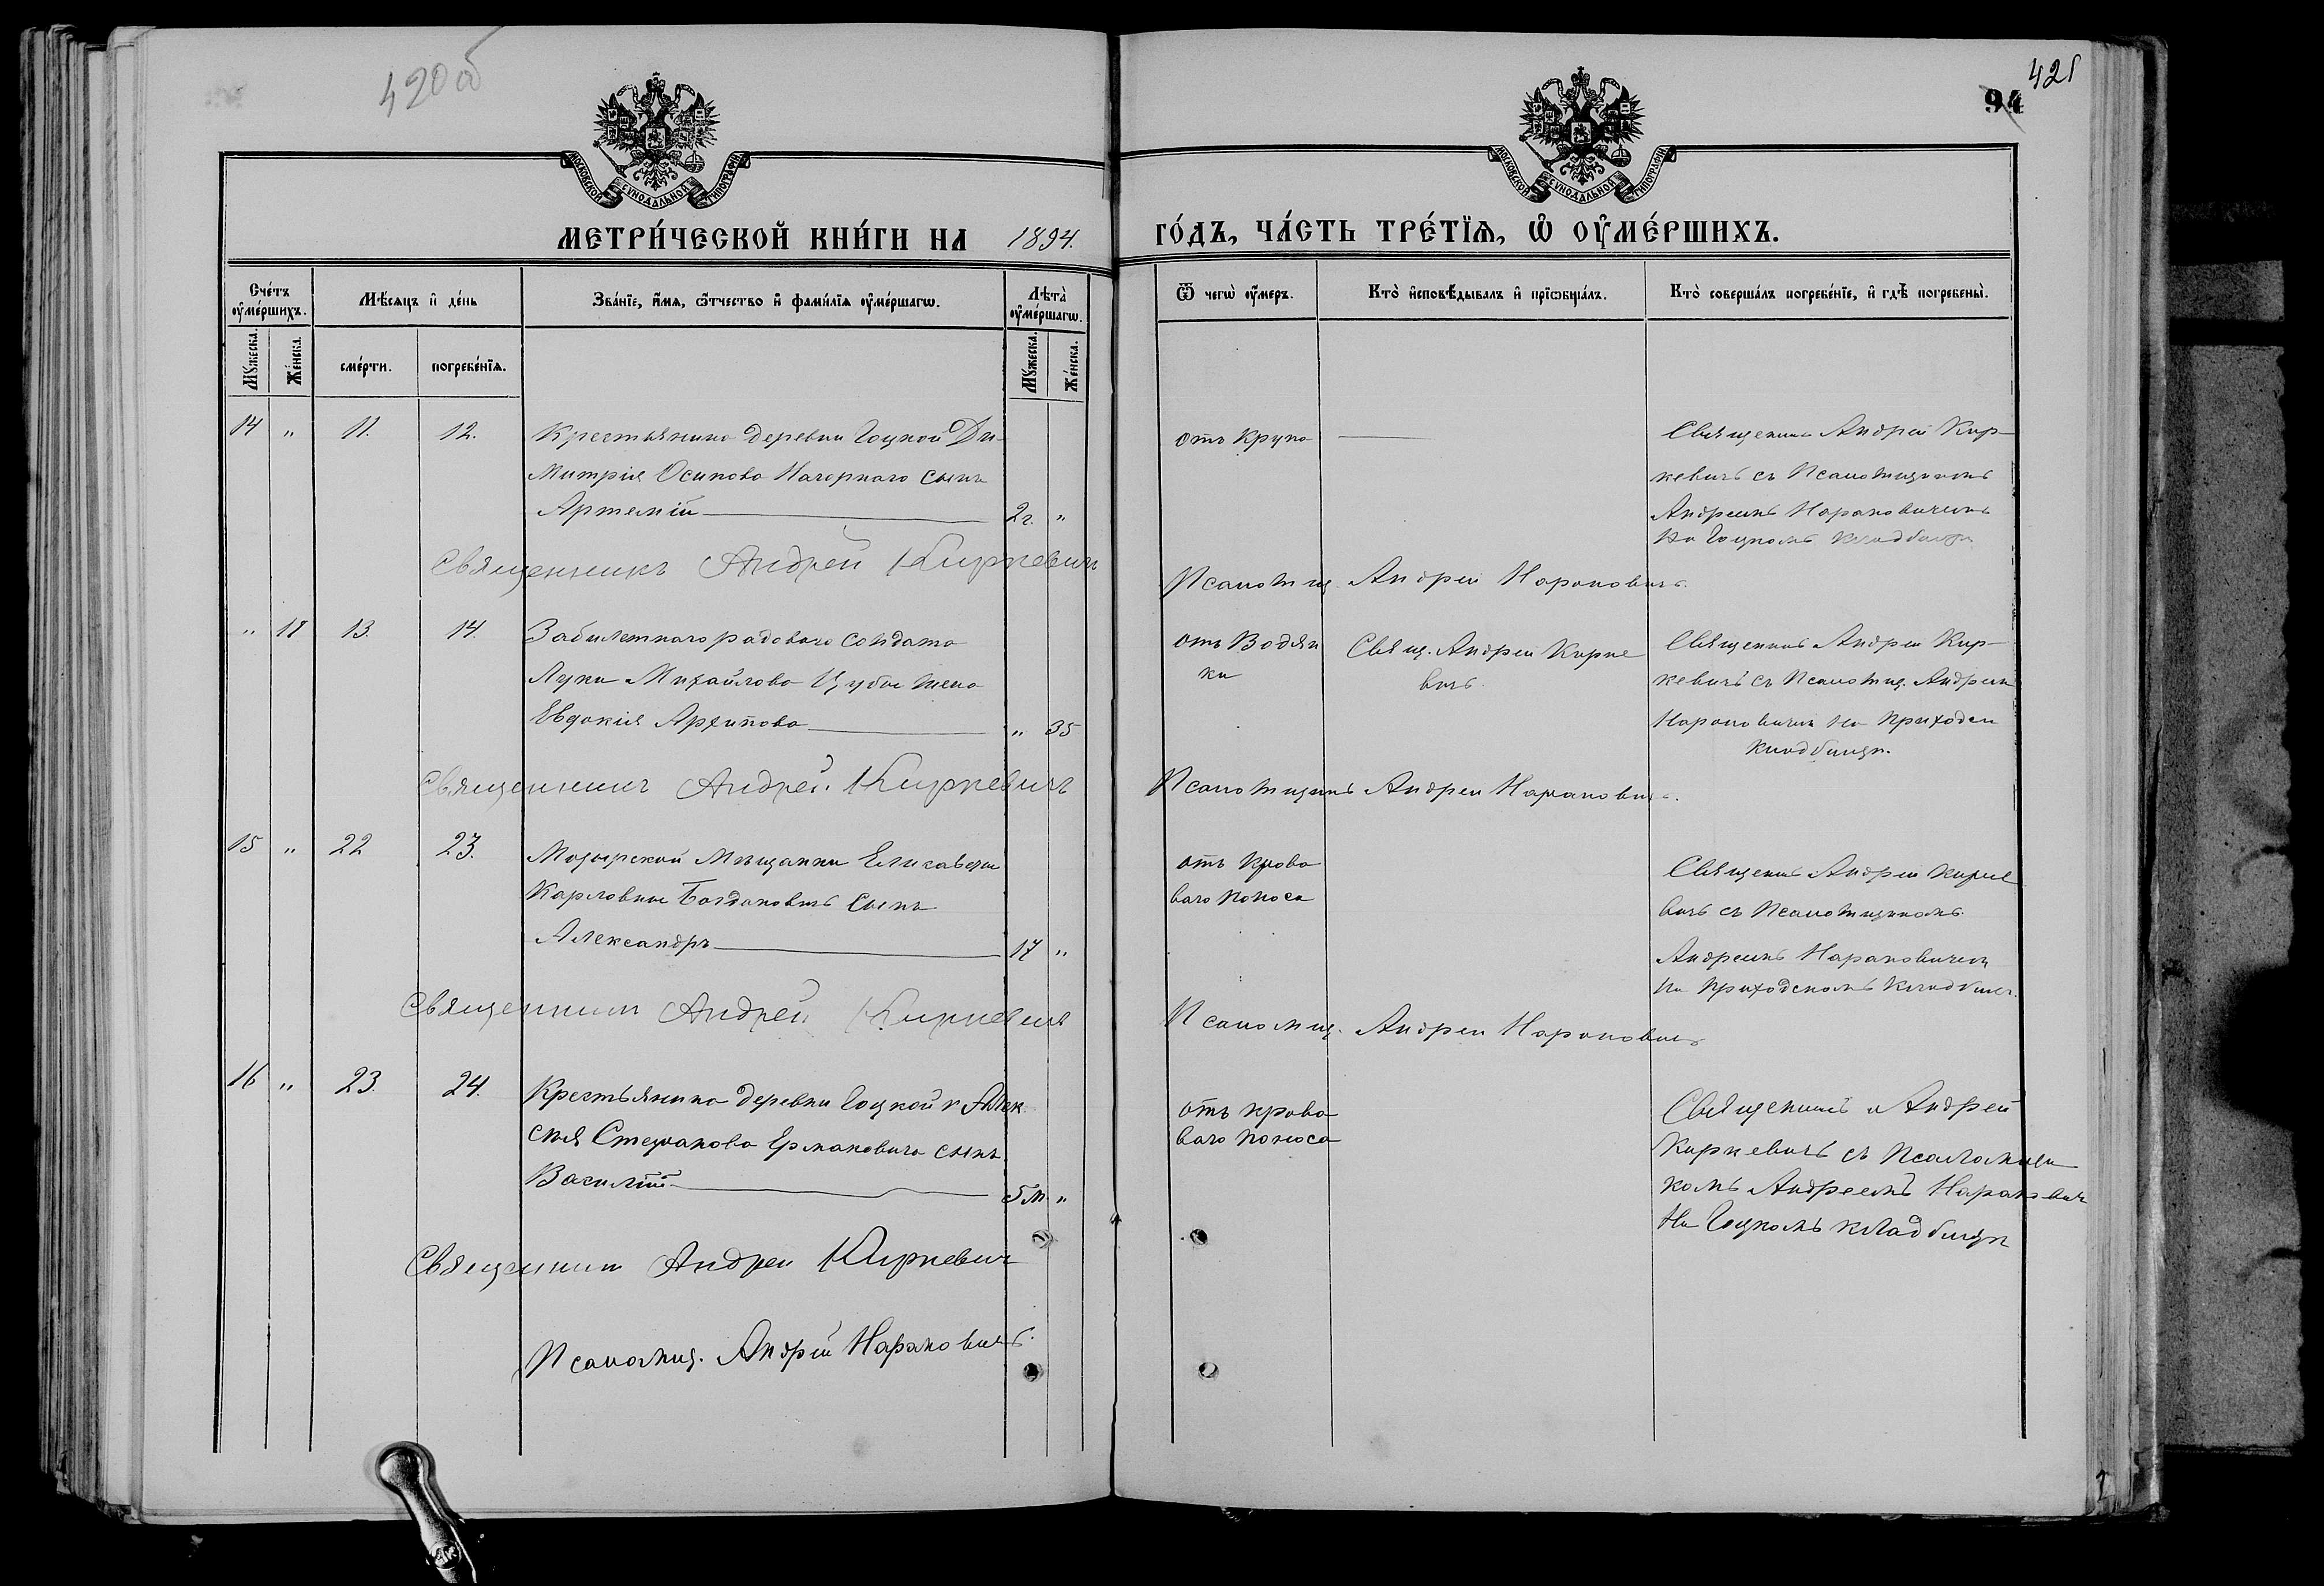 420об
421
94
МОСКОВСКОЙ СУНОДАЛЬНОЙ ТИПОГРАФІИ
МОСКОВСКОЙ СУНОДАЛЬНОЙ ТИПОГРАФІИ
МЕТРИ́ЧЕСКОЙ КНИ́ГИ НА 1894.
ГО́ДЪ, ЧА́СТЬ ТРЕ́ТЇѦ, Ѡ҆ ОУ҆МЕ́РШИХЪ.
Сче́тъ оу҆ме́ршихъ.
Мѣ́сяцъ и҆ де́нь
Зва́нїе, и҆́мѧ, ѻ҆́тчество и҆ фами́лїѧ оу҆ме́ршагѡ.
Лѣта̀ оу҆ме́ршагѡ.
Ѿ чегѡ̀ оу҆́меръ.
Кто̀ и҆сповѣ́дывалъ и҆ прїѡбща́лъ.
Кто̀ соверша́лъ погребе́нїе, и҆ гдѣ̀ погребены̀.
Мꙋ́жеска.
Же́нска.
сме́рти.
погребе́нїѧ.
Мꙋ́жеска.
Же́нска.
14 " 11. 12. Крестьянина деревни Гоцкой Ди-
митрія Осипова Нагорнаго сынъ
Артемій 2г. "
отъ Крупа
Священникъ Андрей Кир-
кевичъ съ Псаломщикомъ
Андреемъ Нарановичемъ
на Гоцкомъ кладбищѣ
Священникъ Андрей Киркевичъ
Псаломщ. Андрей Нарановичъ.
" 13. 14. Забилетнаго рядоваго солдата
Луки Михайлова жена
Евдокія Архипова " 35
отъ Водян
ки
Свящ. Андрей Кирке
вичъ.
Священникъ Андрей Кир-
кевичъ съ Псаломщ. Андреем
Нарановичемъ на приходск
кладбищѣ.
Священникъ Андрей Киркевичъ
Псаломщикъ Андрей Нарановичъ.
15 " 22 23. Мозырской мѣщанки Елисаветы
Карловны Богдановичъ сынъ
Александръ 17 "
отъ Крова
ваго поноса
Священникъ Андрей Кирке
вичъ съ Псаломщикомъ
Андреемъ Нарановичемъ
на приходскомъ кладбищѣ.
Священникъ Андрей Киркевичъ
Псаломщ. Андрей Нарановичъ
16 " 23. 24. Крестьянина деревни Гоцкой Алек
сѣя Стефанова Ермаковича сынъ
Василій 5 м. "
отъ крова
ваго поноса
Священникъ Андрей
Киркевичъ съ Псаломщи
комъ Андреемъ Нарановичемъ
на Гоцкомъ кладбищѣ
Священникъ Андрей Киркевичъ
Псаломщ. Андрей Нарановичъ.